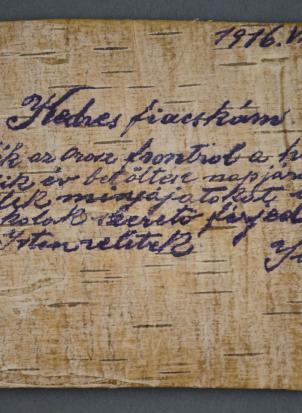 1916. V
Kedves fiacskám
az orosz frontrol a h
ik év betöltése napján
minnyájatokat
kolok szerető férjed
Isten veletek